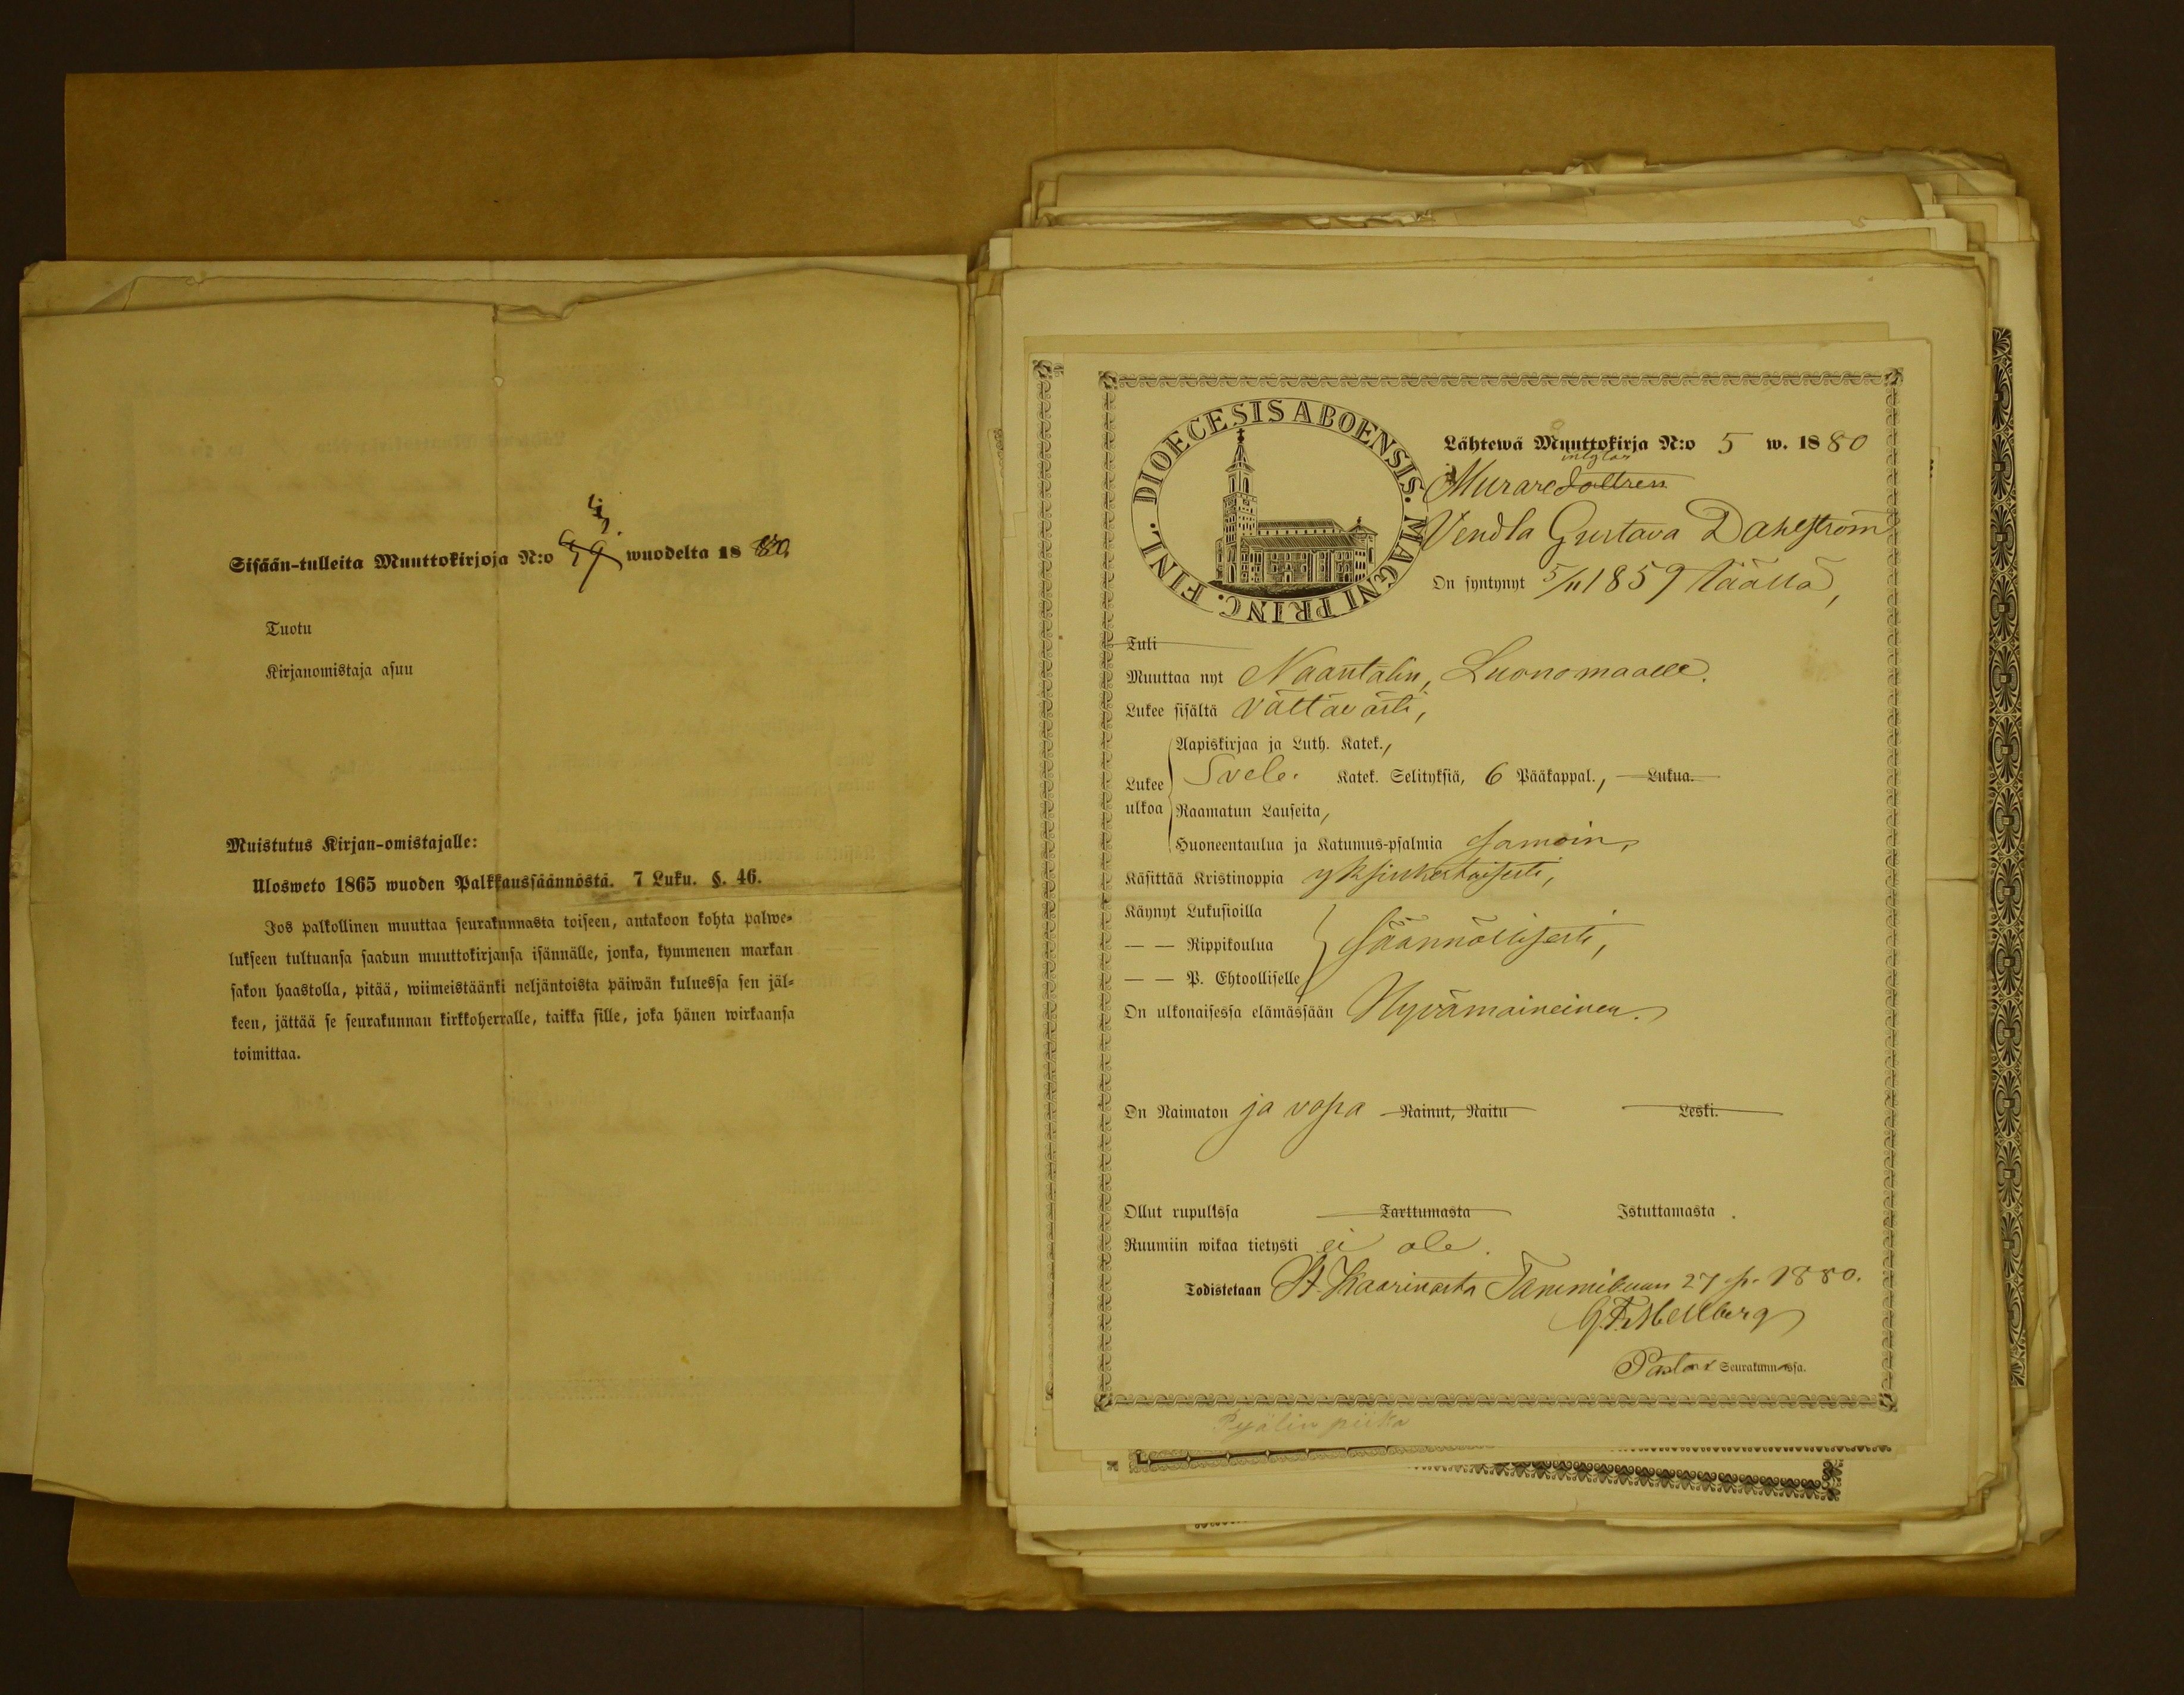 Sisään-tulleita Muuttokirjoja N:o 59 wuodelta 1880.
Tuotu
Kirjanomistaja asuu
Muistutus Kirjan-omistajalle:
Ulosweto 1865 wuoden Palkkaussäännöstä. 7 Luku. §. 46.
Jos palkollinen muuttaa seurakunnasta toiseen, antakoon kohta palwe-
lukseen tultuansa saadun muuttokirjansa isännälle, jonka, kymmenen markan
sakon haastolla, pitää, wiimeistäänki neljäntoista päiwän kuluessa sen jäl-
keen, jättää se seurakunnan kirkkoherralle, taikka sille, joka hänen wirkaansa
toimittaa.
DIOECESIS ABOENSIS. MAGNI PRINC. FINL.
Lähtewä Muuttokirja N:o 5 w. 1880
Murare dottren
Vendla Gustava Dahlström
On syntynyt 5/11 1859 täällä,
Tuli
Muuttaa nyt Naantalin, Luonomaalle.
Lukee sisältä Vältävästi,
Aapiskirjaa ja Luth. Katek.,
Lukee ulkoa Svebe. Katek. Selityksiä, 6 Pääkappal., Lukua.
Raamatun Lauseita,
Huoneentaulua ja Katumus-psalmia samoin,
Käsittää Kristinoppia yksinkertaisesti,
Käynyt Lukusioilla
— — Rippikoulua säännöllisesti,
— — P. Ehtoolliselle
On ulkonaisessa elämässään Hyvämaineinen.
On Naimaton ja vapa Nainut, Naitu Leski.
Ollut rupulissa Tarttumasta Istuttamasta.
Ruumiin wikaa tietysti ei ole.
Todistetaan St. Kaarinasta Tammikuun 27 p. 1880.
G. F. Hellberg
Pastor Seurakunnassa.
Pyälin piika